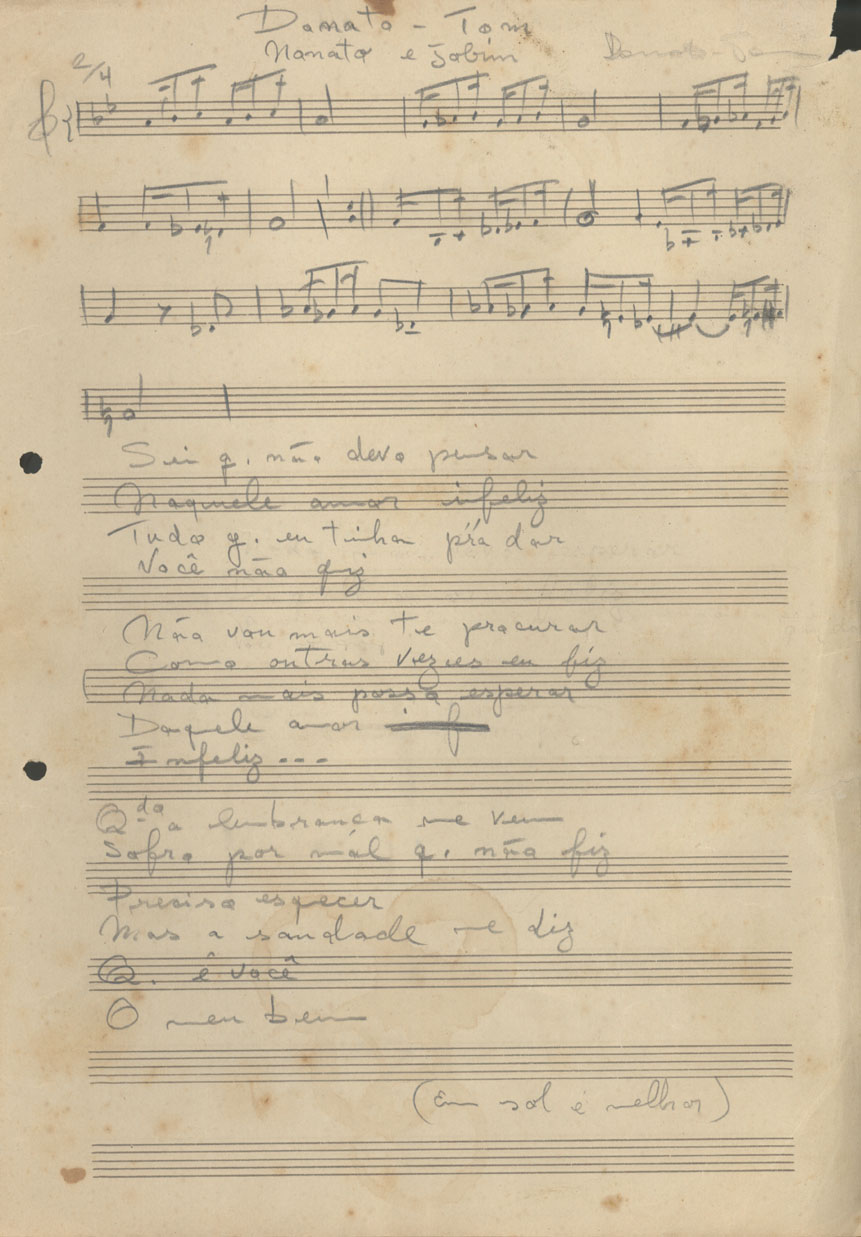 Donato - Tom
Nonato e Jobim
Donato - Tom
2/4
Sei q. não devo pensar
Naquele amor infeliz
Tudo q. eu tinha p'ra dar
Você não quiz
Não vou mais te procurar
Como outras vezes eu fiz
Nada mais posso esperar
Daquele amor
Infeliz...
Qdo a lembrança me vem
Sofro por mál q. não fiz
Preciso esquecer
Mas a saudade me diz
Q. ê você
O meu bem
(Em sol é melhor)